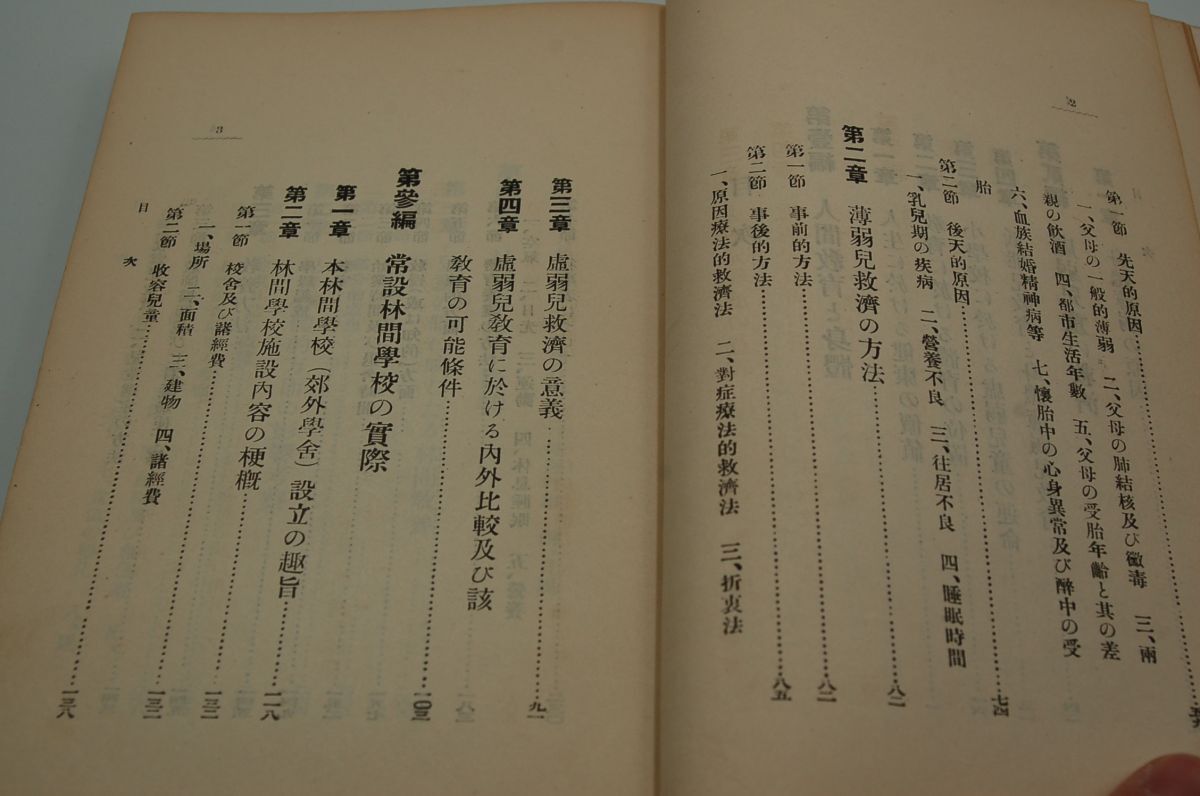 2
第一節 先天的原因
一、父母の一般的薄弱 二、父母の肺結核及び黴毒 三、兩
親の飮酒 四、都市生活年數 五、父母の受胎年齡と其の差
六、血族結婚精神病等 七、懷胎中の心身異常及び醉中の受
胎
第二節 後天的原因……七四
一、乳兒期の疾病 二、營養不良 三、住居不良 四、睡眠時間
第二章 薄弱兒救濟の方法……八二
第一節 事前的方法……八二
第二節 事後的方法……八五
一、原因療法的救濟法 二、對症療法的救濟法 三、折衷法
3
第三章 虛弱兒救濟の意義……九一
第四章 虛弱兒敎育に於ける內外比較及び該
敎育の可能條件……一〇三
第參編 常設林間學校の實際
第一章 本林間學校（郊外學舍）設立の趣旨……一一八
第二章 林間學校施設內容の梗槪
第一節 校舍及び諸經費……一三二
一、場所 二、面積 三、建物 四、諸經費
第二節 收容兒童……一三八
目 次